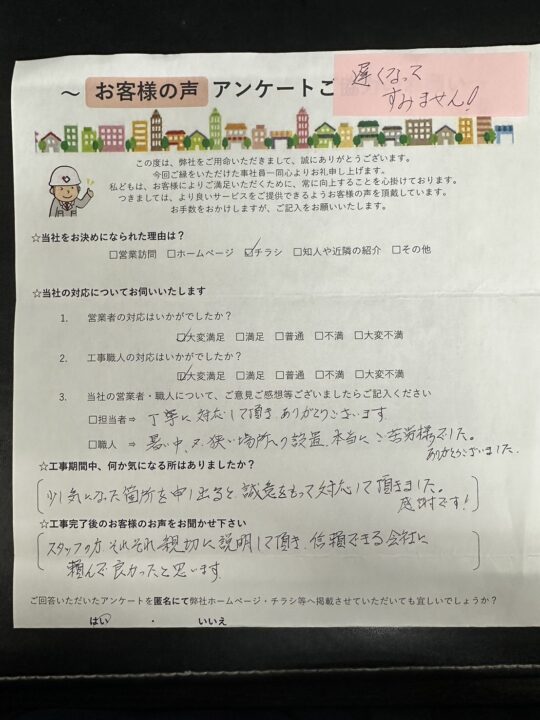 ~ お客様の声 アンケートご
遅くなって
すみません!
この度は、弊社をご用命いただきまして、誠にありがとうございます。
今回ご縁をいただけた事社員一同心よりお礼申し上げます。
私どもは、お客様によりご満足いただくために、常に向上することを心掛けております。
つきましては、より良いサービスをご提供できるようお客様の声を頂戴しています。
お手数をおかけしますが、ご記入をお願いいたします。
☆当社をお決めになられた理由は？
□営業訪問 □ホームページ ☑チラシ □知人や近隣の紹介 □その他
☆当社の対応についてお伺いいたします
1. 営業者の対応はいかがでしたか？
☑大変満足 □満足 □普通 □不満 □大変不満
2. 工事職人の対応はいかがでしたか？
☑大変満足 □満足 □普通 □不満 □大変不満
3. 当社の営業者・職人について、ご意見ご感想等ございましたらご記入ください
□担当者⇒ 丁寧に対応して頂きありがとうございます
□職人 ⇒ 暑い中、又、狭い場所への設置、本当にご苦労様でした。
ありがとうございました。
☆工事期間中、何か気になる所はありましたか？
少し気になった箇所を申し出ると誠意をもって対応して頂きました。
感謝です!
☆工事完了後のお客様のお声をお聞かせ下さい
スタッフの方、それぞれ親切に説明して頂き、信頼できる会社に
頼んで良かったと思います
ご回答いただいたアンケートを匿名にて弊社ホームページ・チラシ等へ掲載させていただいても宜しいでしょうか？
はい ・ いいえ